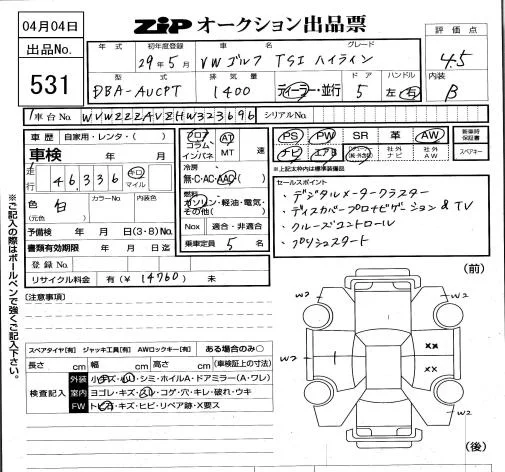 04月04日
ZIP オークション出品票
出品No.
531
年式 初年度登録 車名 グレード
29年5月 VWゴルフ TSI ハイライン
型式 排気量 ドア ハンドル
DBA-AUCPT 1400 ディーラー・並行 5 左・右
評価点
4.5
内装
B
車台No. WVWZZZAVZHW323696 シリアルNo.
車歴 自家用・レンタ・( )
車検 年 月
走行 46,336 キロ マイル
色 白 カラーNo. 内装色
(元色)
予備検 年 月 日(3・8)No.
書類有効期限 年 月 日迄
登録No.
リサイクル料金 有(¥ 14760 ) 未
フロア コラム インパネ AT MT 速
冷房 無・C・AC・AAC
燃料 ガソリン・軽油・電気・その他( )
Nox 適合・非適合
乗車定員 5 名
PS PW SR 革 AW 新車時保証書
ナビ エアB 社外ナビ 社外AW スペアキー
※上記太枠中は標準装備品
セールスポイント
・デジタルメータークラスター
・ディスカバープロナビゲーション & TV
・クルーズコントロール
・プッシュスタート
※ご記入の際はボールペンで強くご記入下さい。
[注意事項]
(前)
W2 W2
W2 XX
XX
W2 W2
(後)
スペアタイヤ[有] ジャッキ工具[有] AWロックキー[有] ある場合のみ○
長さ cm 幅 cm 高さ cm (車検証上の寸法)
検査記入 外装 小キズ・小凹・シミ・ホイルA・ドアミラー(A・ワレ)
室内 ヨゴレ・キズ・スレ・コゲ・穴・キレ・破れ・ウキ
FW トビ石・キズ・ヒビ・リペア跡・X要ス